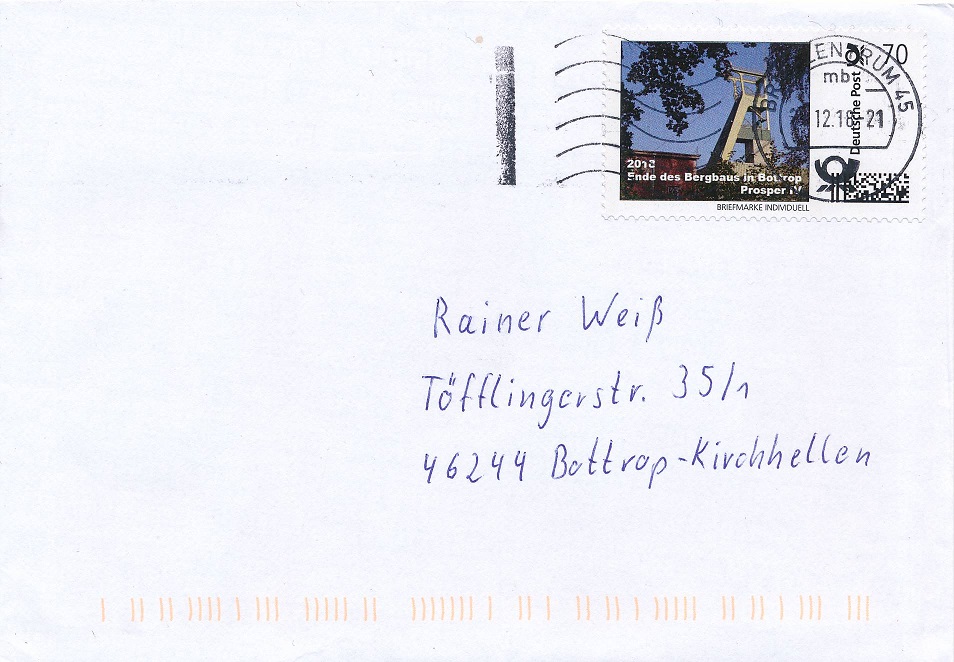 70
Deutsche Post
BRIEFZENTRUM 45
mb
12.18-21
2018
Ende des Bergbaus in Bottrop
Prosper IV
BRIEFMARKE INDIVIDUELL
Rainer Weiß
Töfflingerstr. 35/1
46244 Bottrop-Kirchhellen